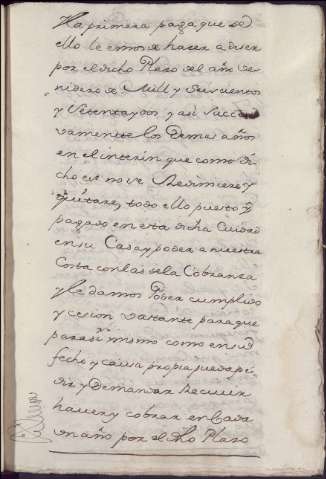 Ya primera paga que de
ello le emos de hacer a de ser
por el dicho Plazo del año ve
nidero de Mill y doscientos
y Setenta y dos, y asi succesi
vamentte los Demas años
en el interin que como di
cho es no se Redimiere y
quitare, todo ello puesto y
pagado en esta dicha Ciudad
en su Casa y poder a nuestra
Costa con las de la Cobranza
y le damos Poder cumplido
y cesion vastante para que
para si mismo como en su
fecho y causa propia pueda pe
dir y Demandar Recivir
haver y cobrar en Cada
un año por el dho Plazo